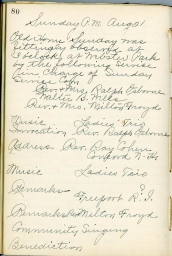 80
Sunday P.M. Aug 21
Old Home Sunday was
fittingly observed at
3 o'clock at Webster Park
by the following Service
in Charge of Sunday
Service Com.
Rev. + Mrs. Ralph Osborne
Walter B. Mills
Rev. + Mrs. Milton Froyd
Music Ladies Trio
Invocation Rev. Ralph Osborne
Address Rev. Ray
Concord N.H.
Music Ladies Trio
Remarks
Freeport R.I.
Remarks Rev Milton Froyd
Community Singing
Benediction